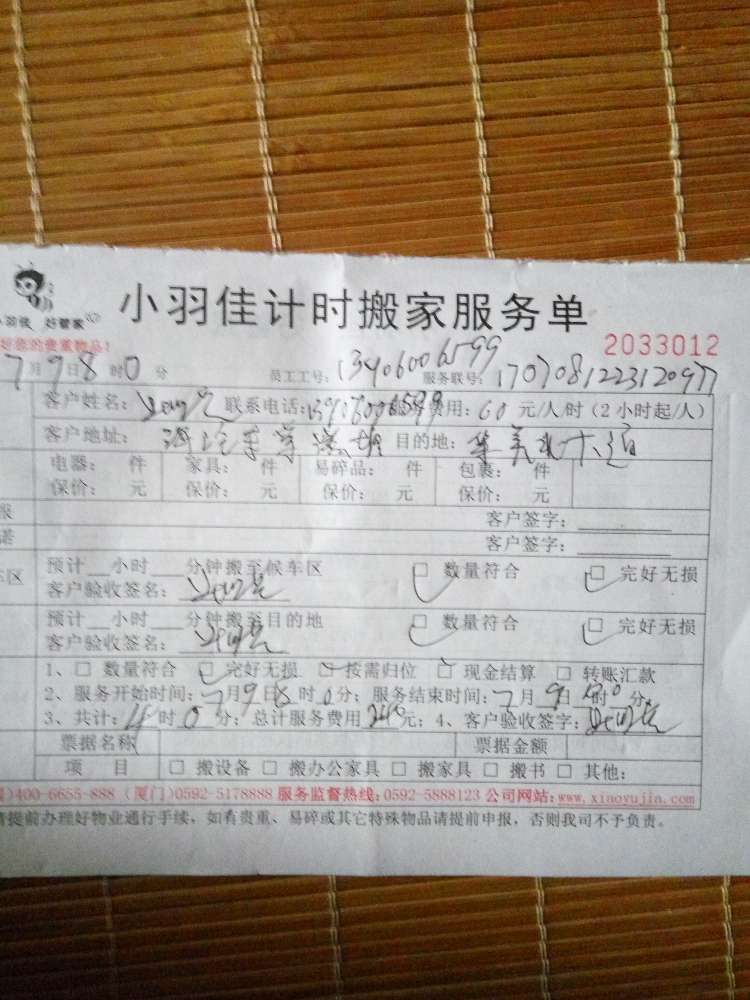 小羽佳 好管家
小羽佳计时搬家服务单
2033012
您的贵重物品!
7月9日8时0分 员工工号: 13906006599 服务联号: 17070812231209
客户姓名: 联系电话: 13906006599 费用: 60元/人/时(2小时起/人)
客户地址: 目的地:
电器: 件 家具: 件 易碎品: 件 包裹: 件
保价: 元 保价: 元 保价: 元 保价: 元
客户签字:
客户签字:
区 预计 小时 分钟搬至候车区 □ 数量符合 □ 完好无损
客户验收签名:
预计 小时 分钟搬至目的地 □ 数量符合 □ 完好无损
客户验收签名:
1、□ 数量符合 □ 完好无损 □ 按需归位 □ 现金结算 □ 转账汇款
2、服务开始时间: 7月9日8时0分; 服务结束时间: 7月9日 时0分
3、共计: 4时0分; 总计服务费用240元; 4、客户验收签字:
票据名称 票据金额
项 目 □ 搬设备 □ 搬办公家具 □ 搬家具 □ 搬书 □ 其他:
)400-6655-888(厦门)0592-5178888 服务监督热线:0592-5888123 公司网站:www.xiaoyujia.com
请提前办理好物业通行手续,如有贵重、易碎或其它特殊物品请提前申报,否则我司不予负责。